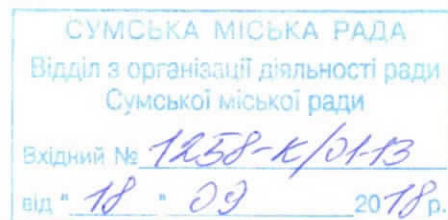 СУМСЬКА МІСЬКА РАДА
Відділ з організації діяльності ради
Сумської міської ради
Вхідний № 1258-К/01-13
від " 18 " 09 2018 р.